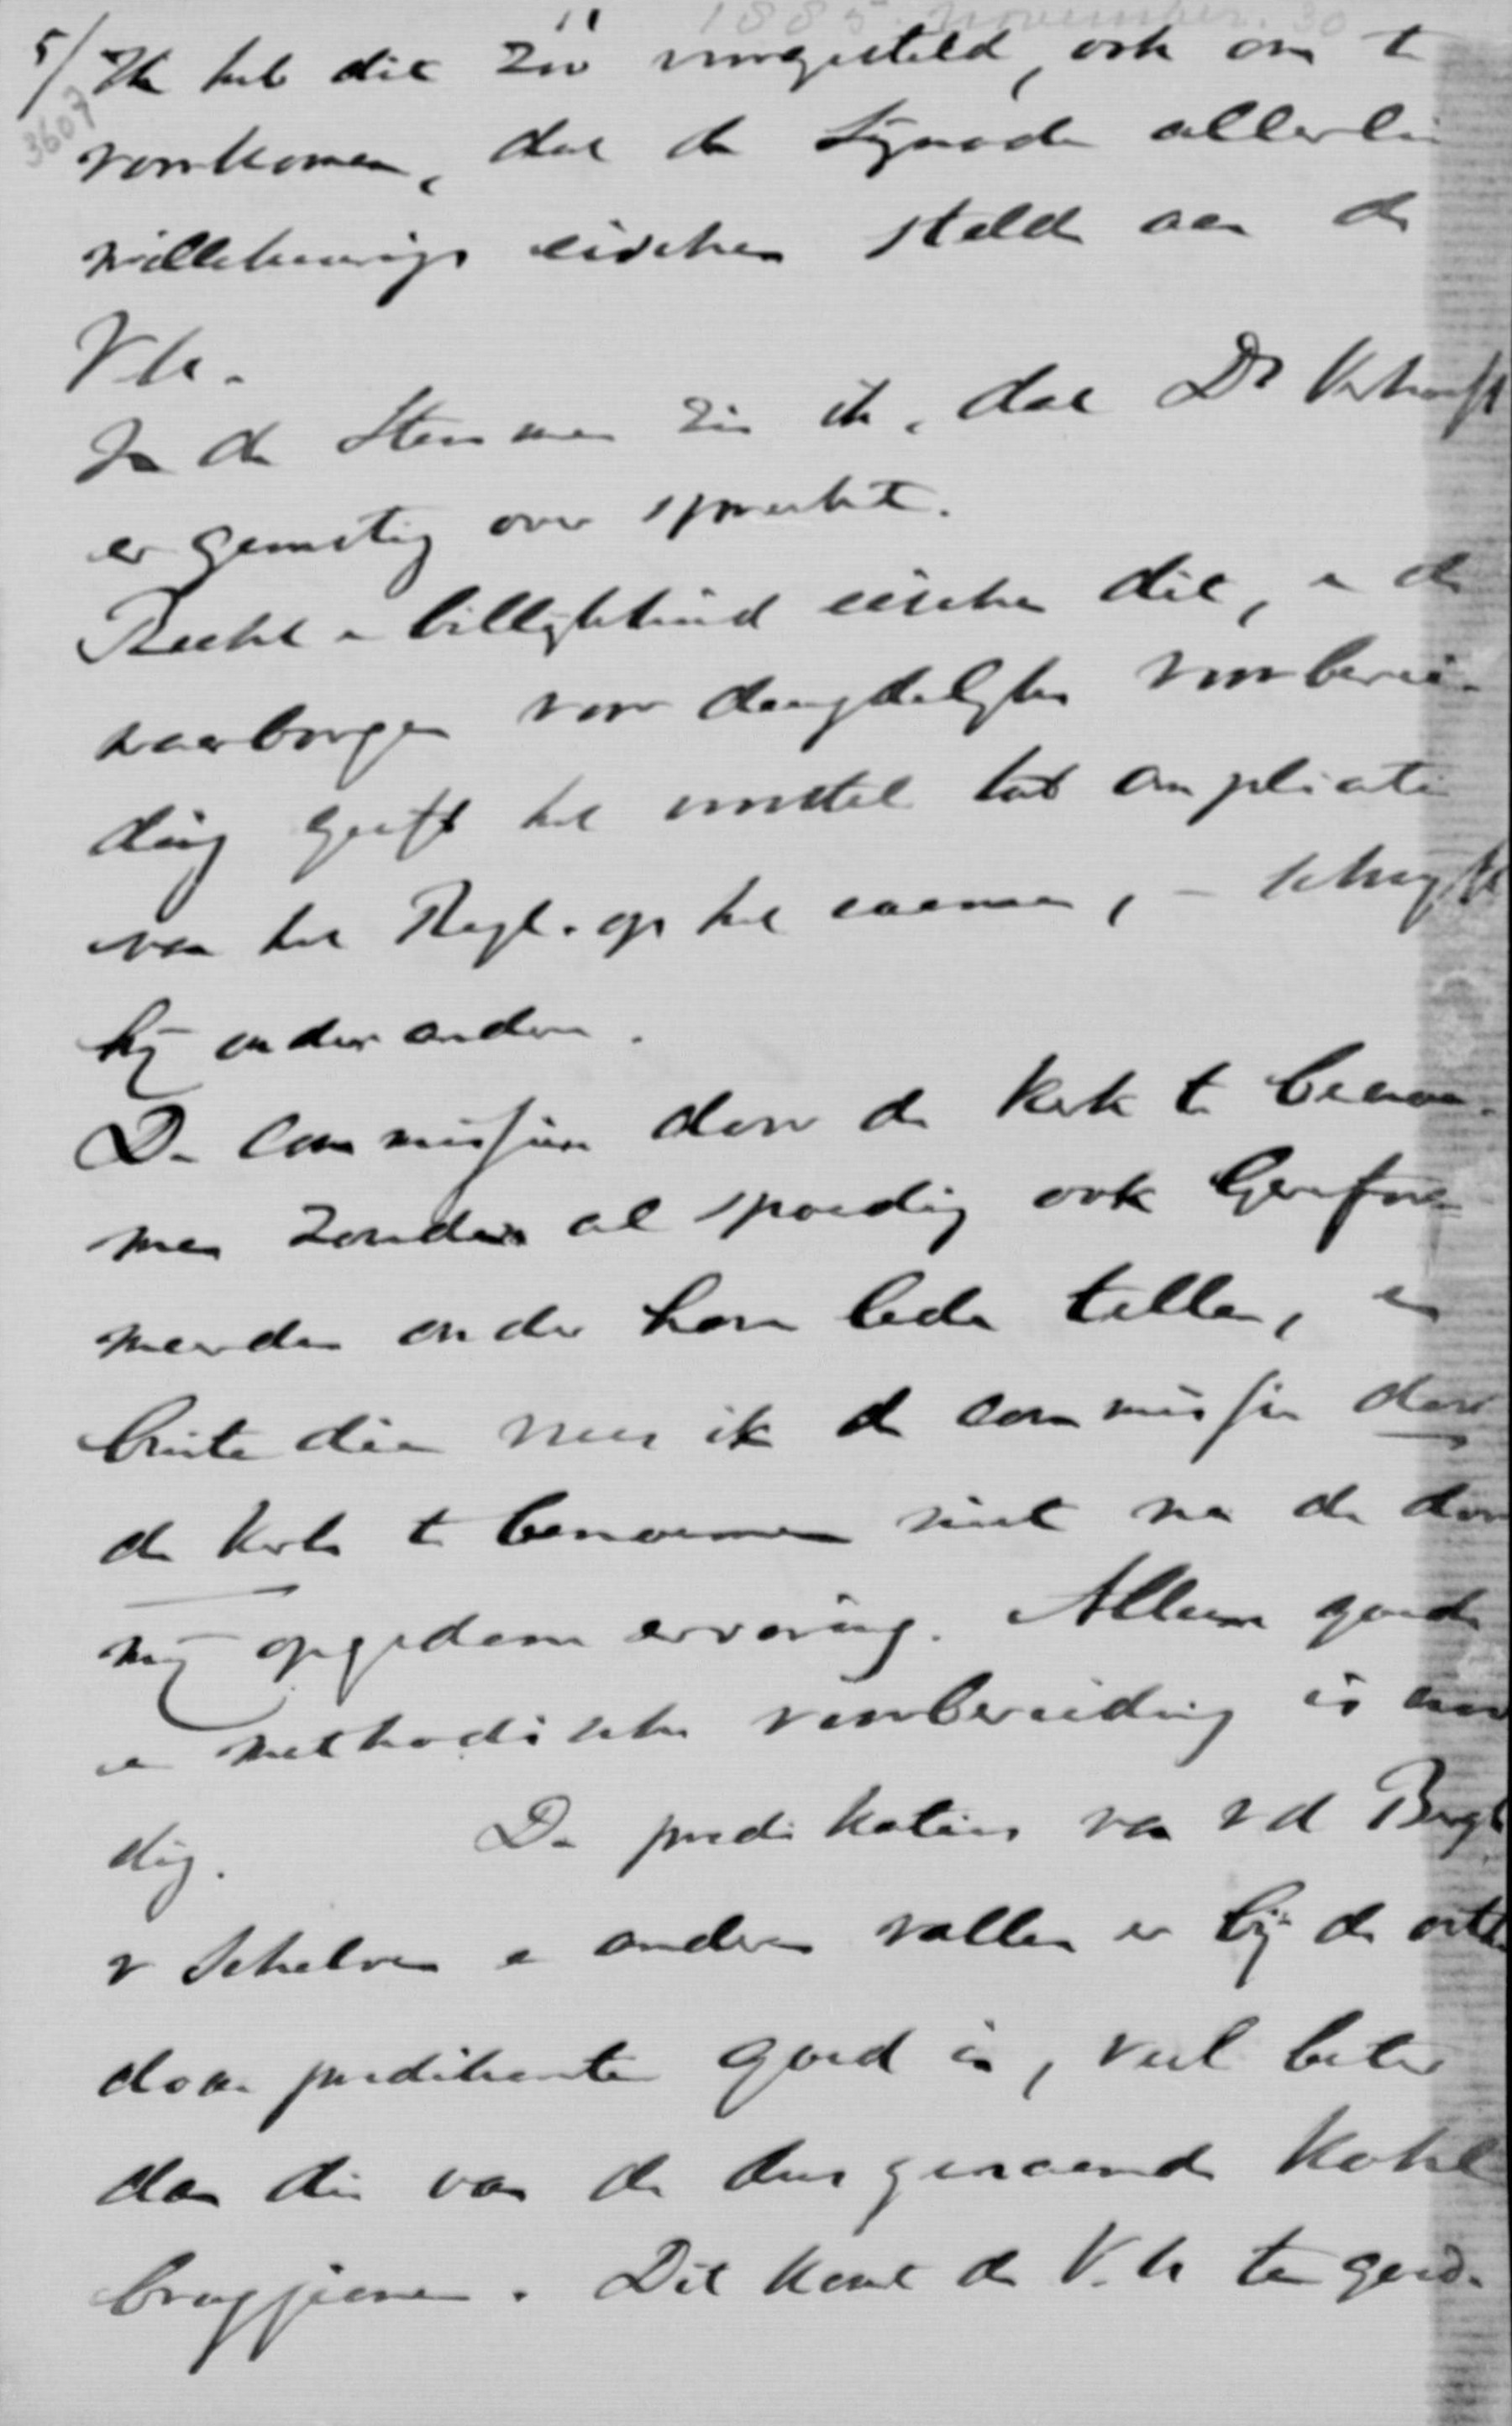 1885. November. 30
5/ Ik heb dit zóó voorgesteld, ook om te
3607
voorkomen, dat de Synode allerlei
willekeurige eischen stelde aan de
V.U.
In de Stemmen zie ik, dat Dr
er gunstig over spreekt.
Recht en billijkheid eischen dit, en de
waarborgen voor deugdelijke voorberei-
ding geeft het voorstel tot ampliatie
van het Regl. op het examen, – schrijft
hij onder andere.
De commissien door de Kerk te benoe-
men zouden al spoedig ook Gerefor-
meerden onder hare leden tellen, en
buitendien vrees ik de commissie door
de Kerk te benoemen niet na de door
mij opgedane ervaring. Alleen goede
en methodische voorbereiding is noo
dig. De predikatien van v d Bergh
v Schelven en anderen vallen er bij de
doxe predikanten goed in, veel beter
dan die van de dusgenaamde Kohl
bruggianen. Dit komt de V.U ten goede.